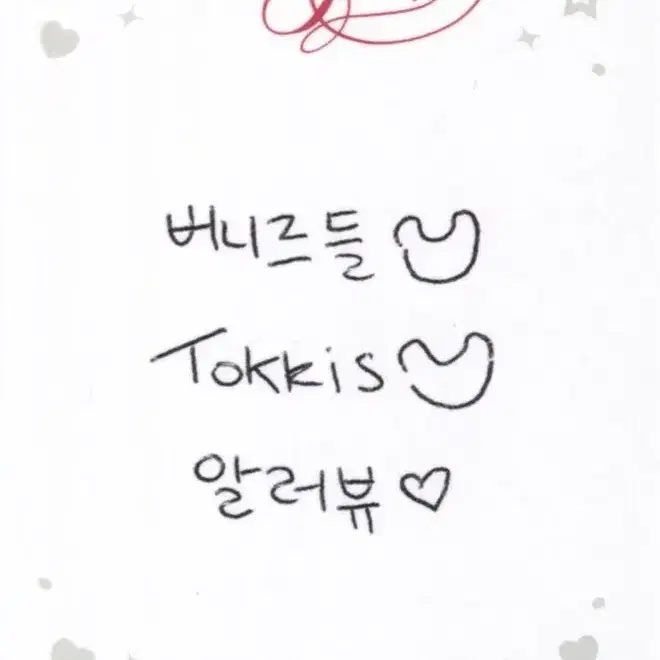 버니즈들
Tokkis
알러뷰♡